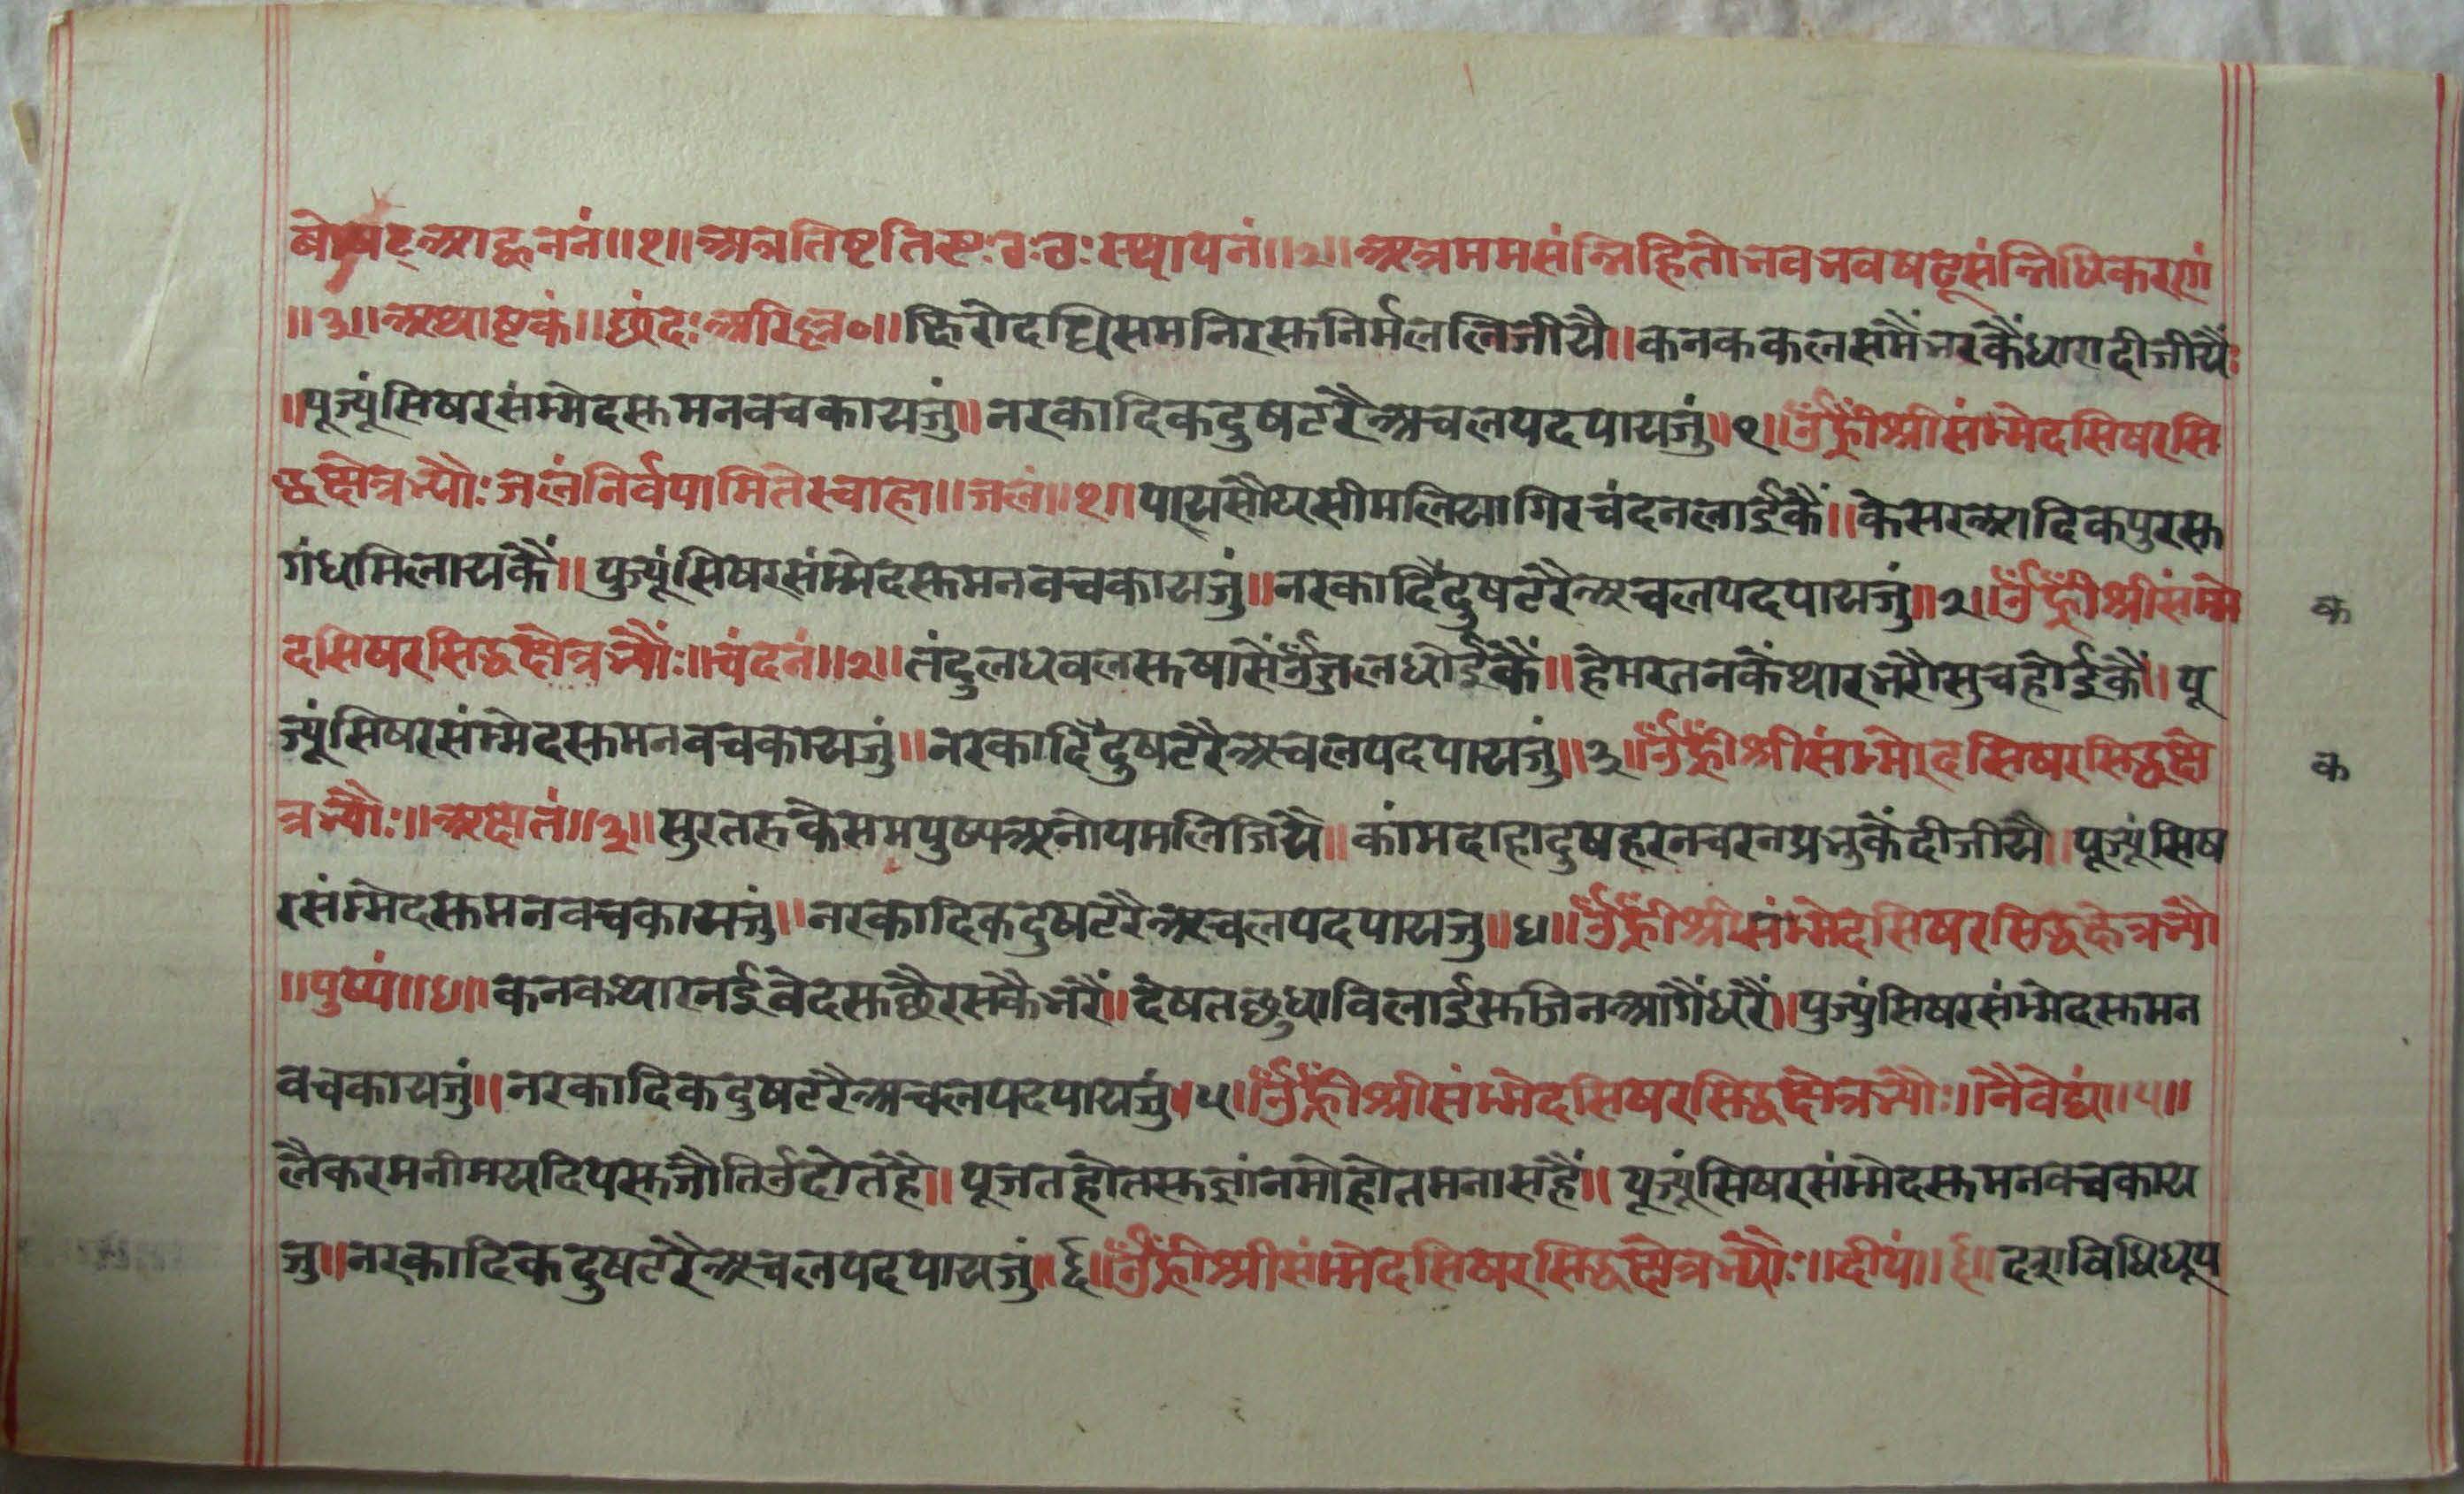 बोषट्अाह्वननं॥१॥अत्रतिष्टतिष्टः ठः ठः स्थापनं॥२॥अत्रममसंन्निहितोभवभवषट्सूसंन्निधिकरणं
॥३॥अथाष्टकं॥छंदःअरिल्ल०॥छिरोदधिसमनिरसुनिर्मललिजीयै॥कनककलसमैंभरकैंधारादीजीयैं
॥पूज्यूंसिषरसंम्मेदसुमनवचकायजुं॥नरकादिकदुषटरैअचलपदपायजुं॥१॥ॐह्रींश्रीसंम्मेदसिषरसि
द्धक्षेत्रभ्यौः जलंनिर्वपामितेस्वाहा॥जलं॥१॥पायसौयसीमलियागिरचंदनलाईकैं॥केसरअादिकपुरसु
गंधमिलायकैं॥पुज्यूंसिषरसंम्मेदसुमनवचकायजुं॥नरकादिदुषटरैअचलपदपायजुं॥२॥ॐह्रींश्रीसंम्मे
क
दसिषरसिद्धक्षेत्रभ्यौंः॥चंदनं॥२॥तंदुलधवलसुषासैंउजलधोईकैं॥हैमरतनकैंथारभरौसुचहोईकैं॥पू
ज्यूंसिषरसंम्मेदसुमनवचकायजुं॥नरकादिदुषटरैअचलपदपायजुं॥३॥ॐह्रींश्रीसंम्मेदसिषरसिद्धक्षे
क
त्रभ्यौः॥अक्षतं॥३॥सुरतरुकैसमपुष्पअनोपमलिजियै॥कांमदाहादुषहरनचरनप्रभुकैंदीजीयै॥पूज्यूंसिष
रसंम्मेदसुमनवचकायजुं॥नरकादिकदुषटरैअचलपदपायजु॥४॥ॐह्रींश्रीसंम्मेदसिषरसिद्धक्षेत्रभ्यौ
॥पुष्पं॥४॥कनकथारनईवेदसुछैरसकैभरैं॥देषतछुधाविलाईसुजिनअागैंधरैं॥पुज्युंसिषरसंम्मेदसुमन
वचकायजुं॥नरकादिकदुषटरैअचलपदपायजुं॥५॥ॐह्रींश्रीसंम्मेदसिषरसिद्धक्षेत्रभ्यौः॥नैवेद्यं॥५॥
लैकरमनीमयदिपसुजौतिउदोतहै॥पूजतहोतसुज्ञांनमोहोतमनासहैं॥पूज्यूंसिषरसंम्मेदसुमनवचकाय
जु॥नरकादिकदुषटरैअचलपदपायजुं॥६॥ॐह्रींश्रीसंम्मेदसिषरसिद्धक्षेत्रभ्यौः॥दीपं॥६॥दसविधिधूप